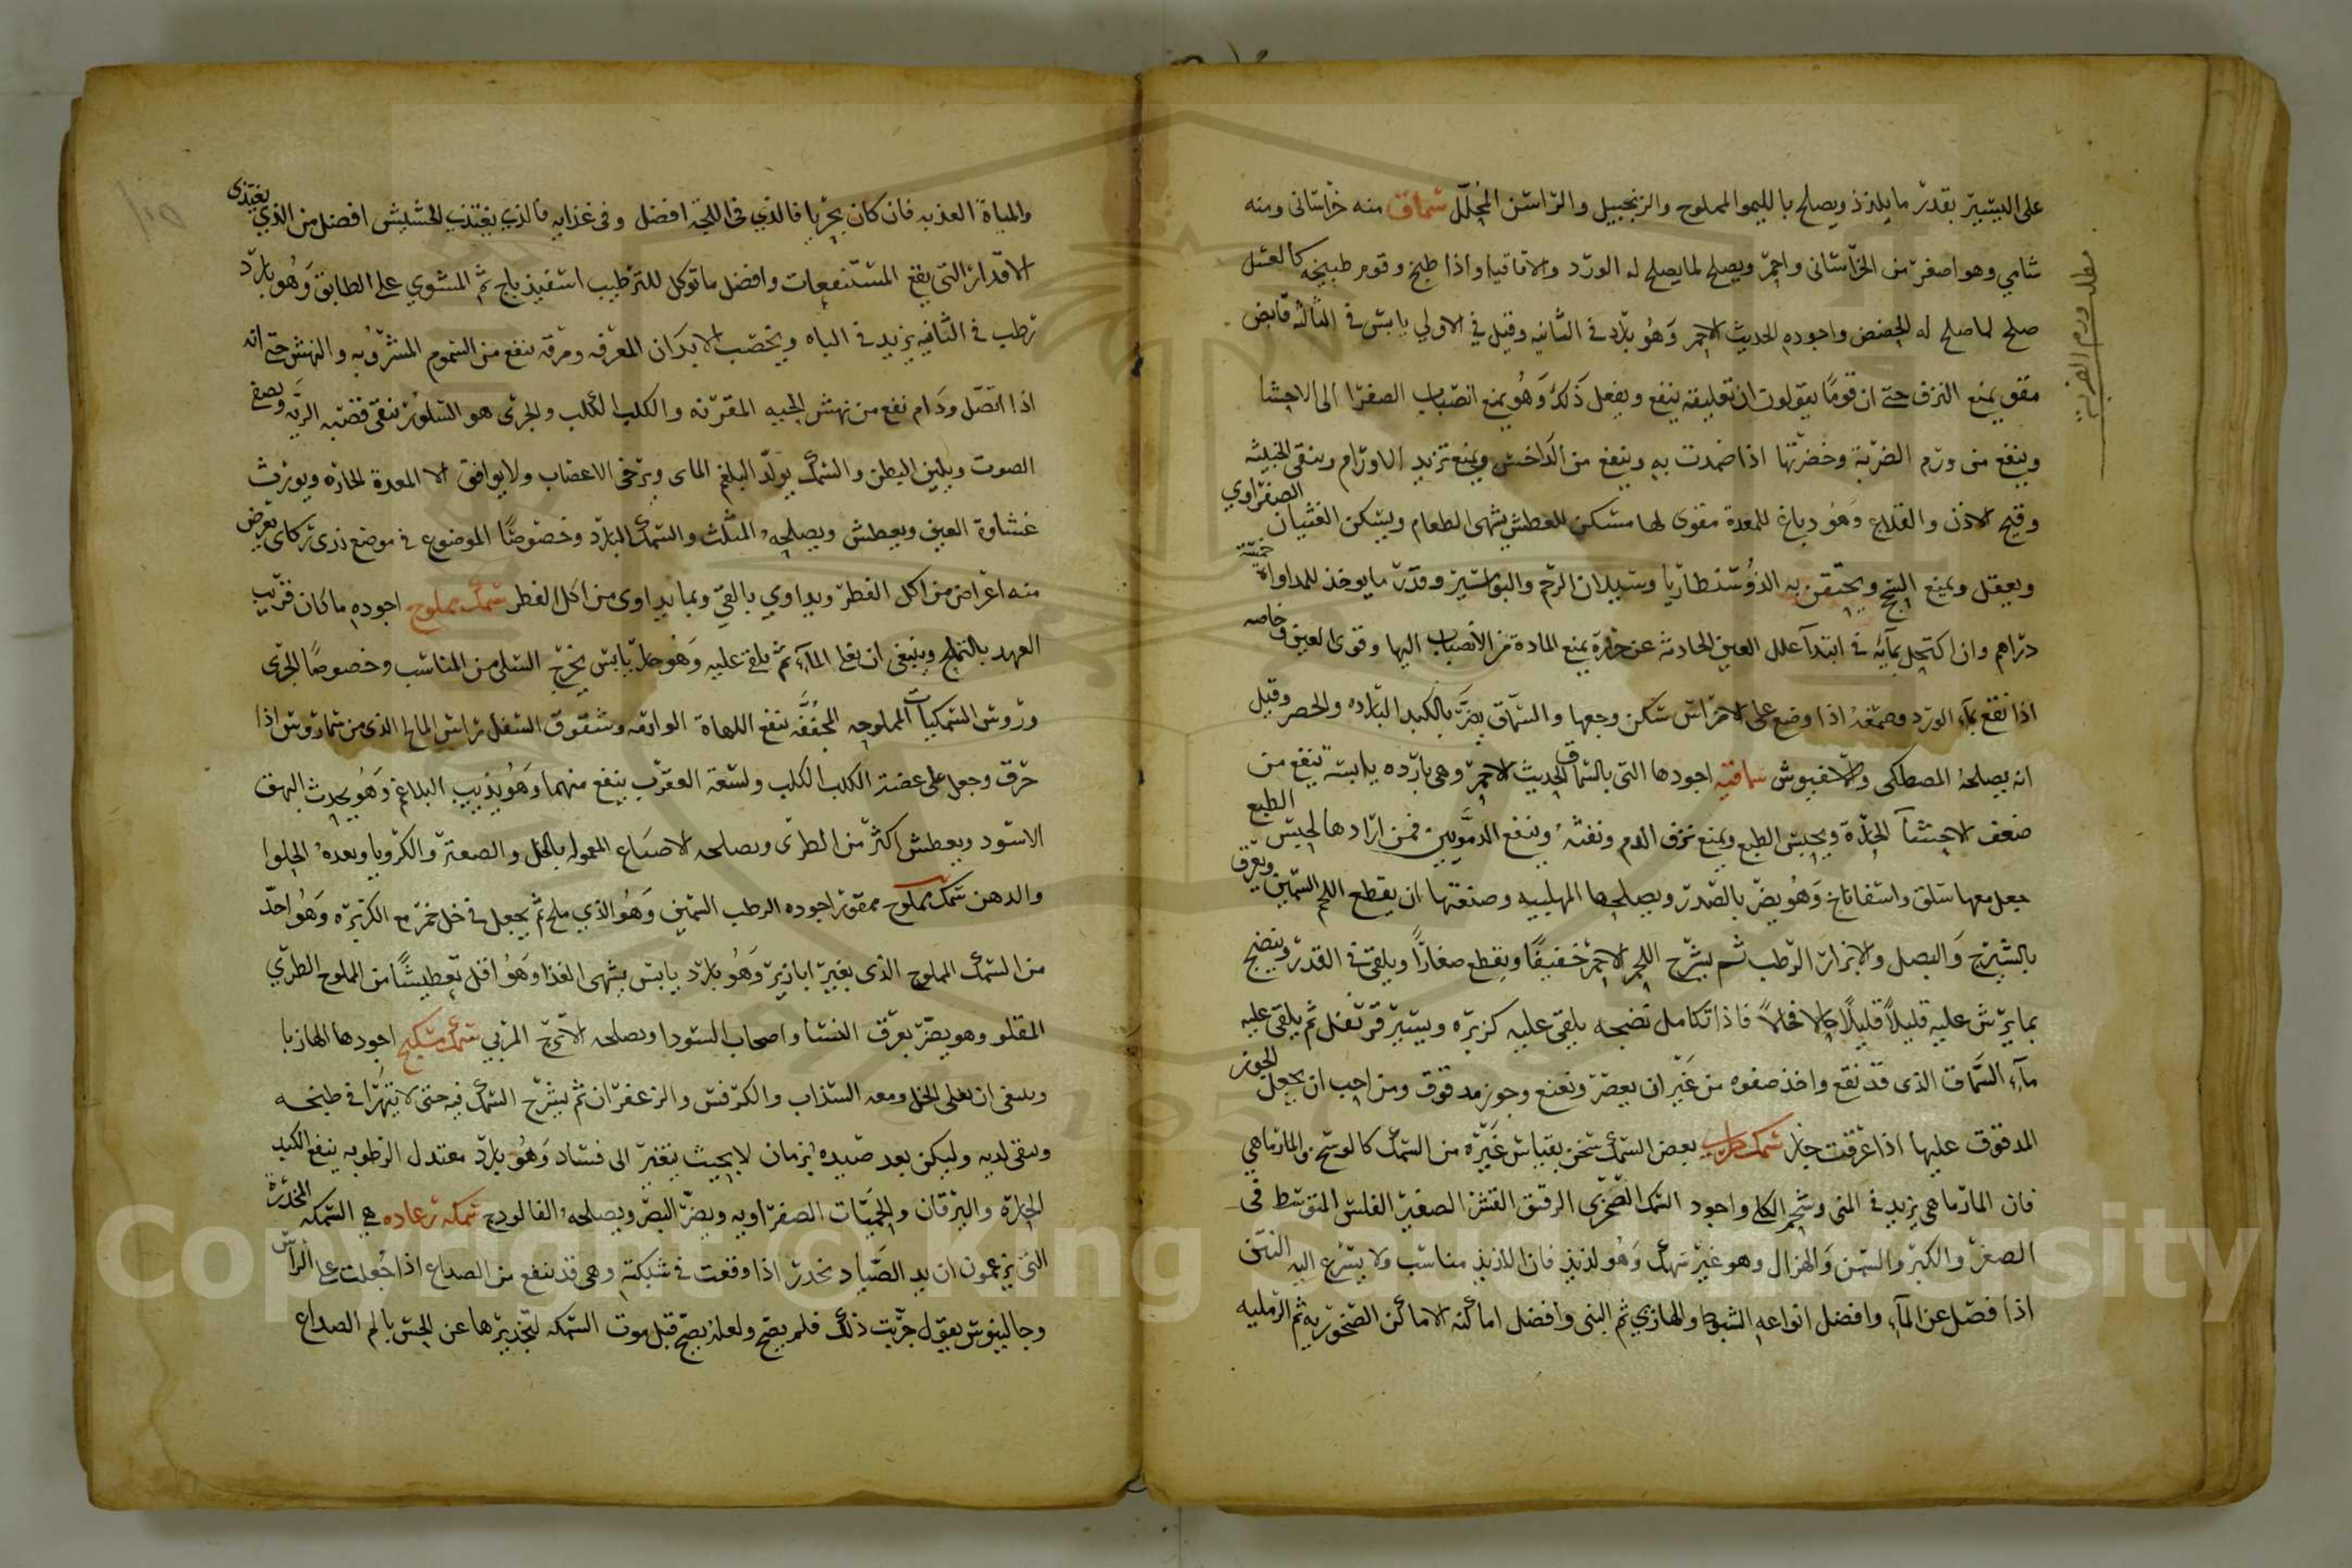 على اليسير بقدر ما يلذذ ويصلح بالليمو المملوح والزنجبيل والراسن المخلل سماق منه خراسانى ومنه
شامي وهو اصغر من الخراسانى واحمر ويصلح لما يصلح له الورد والاقاقيا واذا طبخ وقوم طبيخه كالعسل
صلح لما صلح له الحضض واجوده الحديث الاحمر وهو بارد في الثانيه وقيل في الاولي يابس في الثالثه قابض
مقو يمنع النزف حتى ان قوما يقولون ان تعليقه ينفع ويفعل ذلك وهو يمنع انصباب الصفرا الى الاحشا
وينفع من ورم الضربة وخضرتها اذا ضمدت به وينفع من الداخس ويمنع تزيد الاورام وينقى الخبيثه
وقيح الاذن والقلاع وهو دباغ للمعدة مقوى لها مسكن للعطش يشهى الطعام ويسكن الغثيان الصفراوي
ويعقل ويمنع السحج ويحتقن به الذوسنطاريا وسيلان الرحم والبواسير وقدر ما يوخذ للمداواة خمسة
دراهم وان اكتحل بمآئه في ابتدآ علل العين الحادثه عن حرارة يمنع المادة من الانصباب اليها وقوى العين وخاصه
اذا نقع بمآء الورد وصمغه اذا وضع على الاضراس سكن وجعها والسماق يضر بالكبد البارده والحصر وقيل
انه يصلحه المصطكى والاغيوش سماقيه اجودها التى بالسماق الحديث الاحمر وهى بارده يابسه تنفع من
ضعف الاحشآ الحارة ويحبس الطبع ويمنع نزف الدم ونفثه وينفع الدمويين فمن ارادها لحبس الطبع
جعل معها سلق واسفاناخ وهو يضر بالصدر ويصلحها المهلبيه وصنعتها ان يقطع اللحم السمين ويعرق
بالشيرج والبصل والابزار الرطب ثم يشرح اللحم الاحمر خفيفا ويقطع صغارا ويلقى في القدر وينضج
بما يرش عليه قليلا قليلا حالا فحالا فاذا تكامل نضجه يلقى عليه كزبره ويسير قرنفل ثم يلقى عليه
مآء السماق الذى قد نقع واخذ صفوه من غير ان يعصر ونعنع وجوز مدقوق ومن احب ان يجعل الجوز
المدقوق عليها اذا غرفت جاز سمك طري بعض السمك سخن بقياس غيره من السمك كالوسح والمارماهي
فان المارماهى يزيد في المنى وشحم الكلى واجود السمك الصخرى الرقيق القشر الصغير الفلس المتوسط فى
الصغر والكبر والسمن والهزال وهو غير سهك وهو لذيذ فان اللذيذ مناسب ولا يسرع اليه النتن
اذا فصل عن المآء وافضل انواعه الشبوط والهازبي ثم البنى وافضل اماكنه الاماكن الصخوريه ثم الرمليه
مطلب ورم الضربة
والمياة العذبه فان كان بحريا فالذي في اللجة افضل وفى غذايه فالذي يغتذي الحشيش افضل من الذي يغتذى
الاقدار التى بقع المستنقعات وافضل ما توكل للترطيب اسفيذباج ثم المشوي على الطابق وهو بارد
رطب في الثانيه يزيد في الباه ويخصب الابدان المعرقه ومرقه ينفع من السموم المشروبه والنهش حتى انه
اذا اتصل ودام نفع من نهش الحيه المقرنه والكلب الكلب والجرى هو السلور ينقى قصبه الريه ويصفي
الصوت ويلين البطن والسمك يولد البلغم الماى ويرخى الاعصاب ولا يوافق الا المعدة الحاره ويورث
غشاوة العين ويعطش ويصلحه المثلث والسمك البارد وخصوصا الموضوع في موضع ندى ركاى يعرض
منه اعراض من اكل الفطر ويداوي بالقي وبما يداوى من اكل الفطر سمك مملوح اجوده ما كان قريب
العهد بالتمليح وينبغى ان يغلى المآء ثم يلقى عليه وهو حار يابس يخرج السلى من المناشب وخصوصا الجرى
وروس السمكيات المملوحه المجففه ينفع اللهاة الوارمه وشقوق السفل وراس المالح الذى من سماروس اذا
حرق وجعل على عضة الكلب الكلب ولسعة العقرب ينفع منهما وهو يذيب البلاغم وهو يحدث البهق
الاسود ويعطش اكثر من الطرى ويصلحه الاصباغ المعموله بالخل والصعتر والكرويا وبعده الحلوا
والدهن سمك مملوح ممقور اجوده الرطب السمين وهو الذي ملح ثم يجعل في خل خمر مع الكزبره وهو احد
من السمك المملوح الذى بغير ابازير وهو بارد يابس يشهى الغذا وهو اقل تعطيشا من المملوح الطري
المقلو وهو يضر بعرق النسا واصحاب السودا ويصلحه الاترج المربي سمك سكبج اجودها الهازبا
وينبغى ان يغلى الخل ومعه السذاب والكرفس والزعفران ثم يشرح السمك فيه حتى لا يتهرا في طبخه
وينقى لديه وليكن بعد صيده بزمان لا بحيث يتغير الى فساد وهو بارد معتدل الرطوبه ينفع الكبد
الحارة واليرقان والحميات الصفراويه ويضر البصر ويصلحه الفالودج سمكه رعاده هي السمكه المخدرة
التى يزعمون ان يد الصياد تخدر اذا وقعت في شبكته وهى قد ينفع من الصداع اذا جعلت على الراس
وجالينوس يقول جربت ذلك فلم يصح ولعله يصح قبل موت السمكه لتخديرها عن الحس بالم الصداع